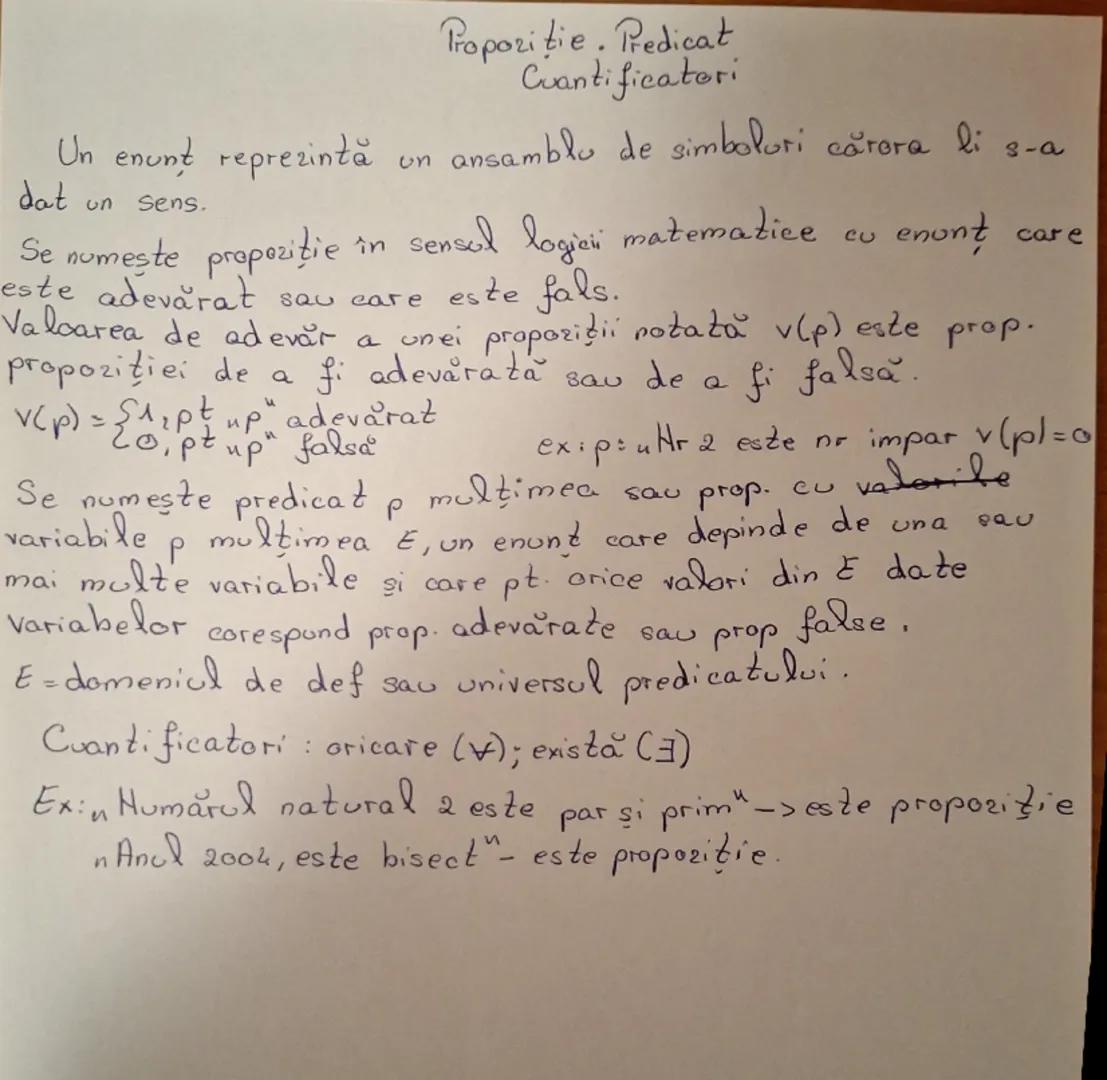 Propoziție. Predicat
Cuantificatori
Un enunț reprezintă un ansamblu de simboluri cărora li s-a
dat un sens.
Se numește propoziție în sensul logicii matematice cu enunț care
este adevărat sau care este fals.
Valoarea de adevăr a unei propoziții notată v(p) este prop.
propoziției de a fi adevărată sau de a fi falsă.
v(p) = {1, pt „p" adevărat
0, pt „p" falsă
ex: p: „Nr 2 este nr impar v(p)=0
Se numește predicat p mulțimea sau prop. cu valorile
variabile p mulțimea E, un enunț care depinde de una sau
mai multe variabile și care pt. orice valori din E date
variabelor corespund prop. adevărate sau prop false.
E = domeniul de def sau universul predicatului.
Cuantificatori: oricare (∀); există (∃)
Ex: „Numărul natural 2 este par și prim" -> este propoziție
„Anul 2004, este bisect" - este propoziție.